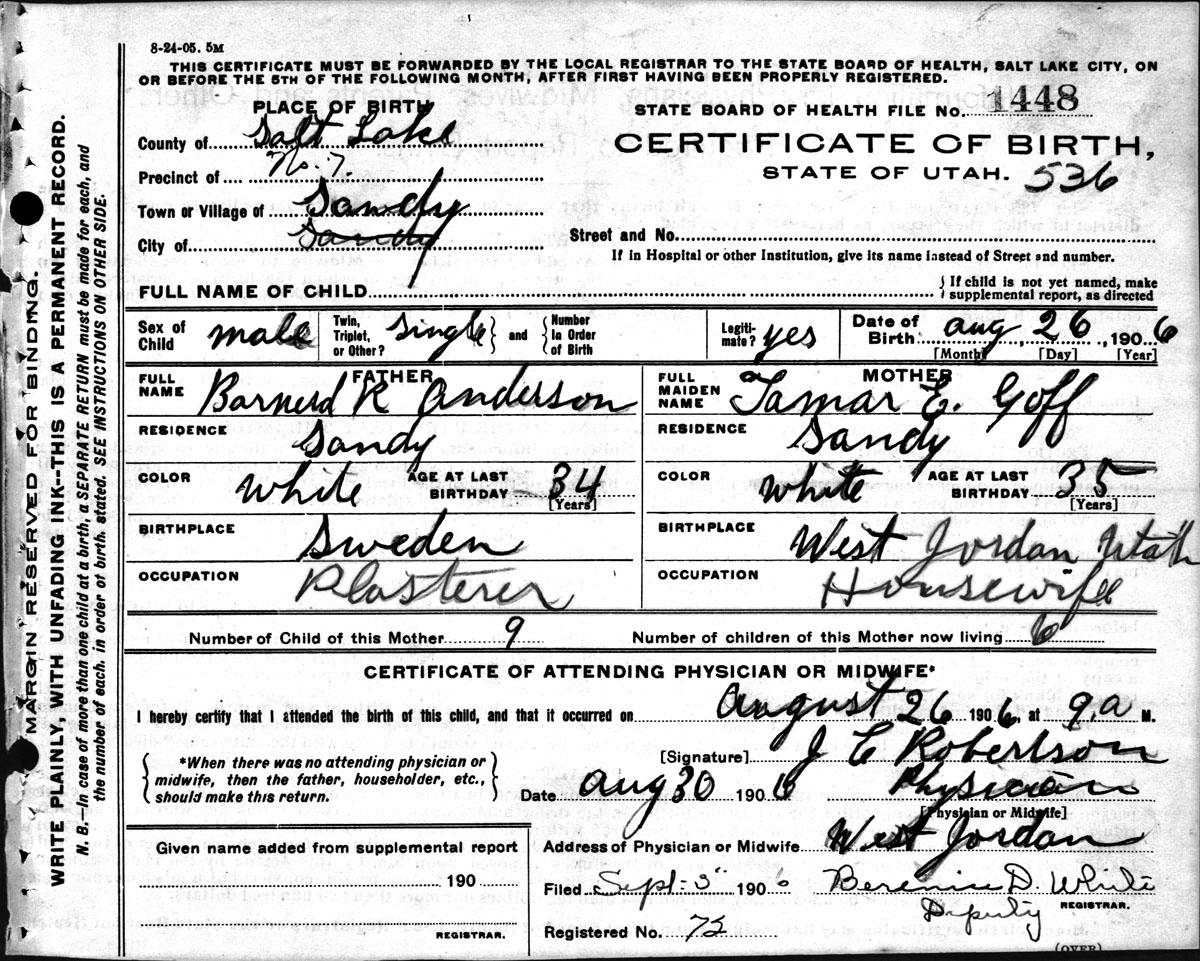 8-24-05. 5M
THIS CERTIFICATE MUST BE FORWARDED BY THE LOCAL REGISTRAR TO THE STATE BOARD OF HEALTH, SALT LAKE CITY, ON
OR BEFORE THE 5TH OF THE FOLLOWING MONTH, AFTER FIRST HAVING BEEN PROPERLY REGISTERED.
PLACE OF BIRTH
STATE BOARD OF HEALTH FILE NO. 1448
County of Salt Lake
CERTIFICATE OF BIRTH,
Precinct of No. 7.
STATE OF UTAH. 536
Town or Village of Sandy
City of Sandy
Street and No.
If in Hospital or other Institution, give its name instead of Street and number.
FULL NAME OF CHILD
{ If child is not yet named, make
supplemental report, as directed
Sex of Child male
Twin, Triplet, or Other? single } and { Number In Order of Birth
Legiti-mate? yes
Date of Birth: aug 26, 1906
[Month] [Day] [Year]
FATHER
MOTHER
FULL NAME Barnerd R Anderson
FULL MAIDEN NAME Tamar E. Goff
RESIDENCE Sandy
RESIDENCE Sandy
COLOR white AGE AT LAST BIRTHDAY 34 [Years]
COLOR white AGE AT LAST BIRTHDAY 35 [Years]
BIRTHPLACE Sweden
BIRTHPLACE West Jordan Utah
OCCUPATION Plasterer
OCCUPATION Housewife
Number of Child of this Mother 9
Number of children of this Mother now living 6
CERTIFICATE OF ATTENDING PHYSICIAN OR MIDWIFE*
I hereby certify that I attended the birth of this child, and that it occurred on August 26 1906, at 9.a M.
{ *When there was no attending physician or
midwife, then the father, householder, etc.,
should make this return. }
[Signature] J C Robertson
Date aug 30 1906 Physician
[Physician or Midwife]
Address of Physician or Midwife West Jordan
Given name added from supplemental report
190
REGISTRAR.
Filed Sept-5" 1906 Berenice D. White
REGISTRAR.
Deputy
Registered No. 72
(OVER)
MARGIN RESERVED FOR BINDING.
WRITE PLAINLY, WITH UNFADING INK--THIS IS A PERMANENT RECORD.
N. B.—In case of more than one child at a birth, a SEPARATE RETURN must be made for each, and
the number of each, in order of birth, stated. SEE INSTRUCTIONS ON OTHER SIDE.